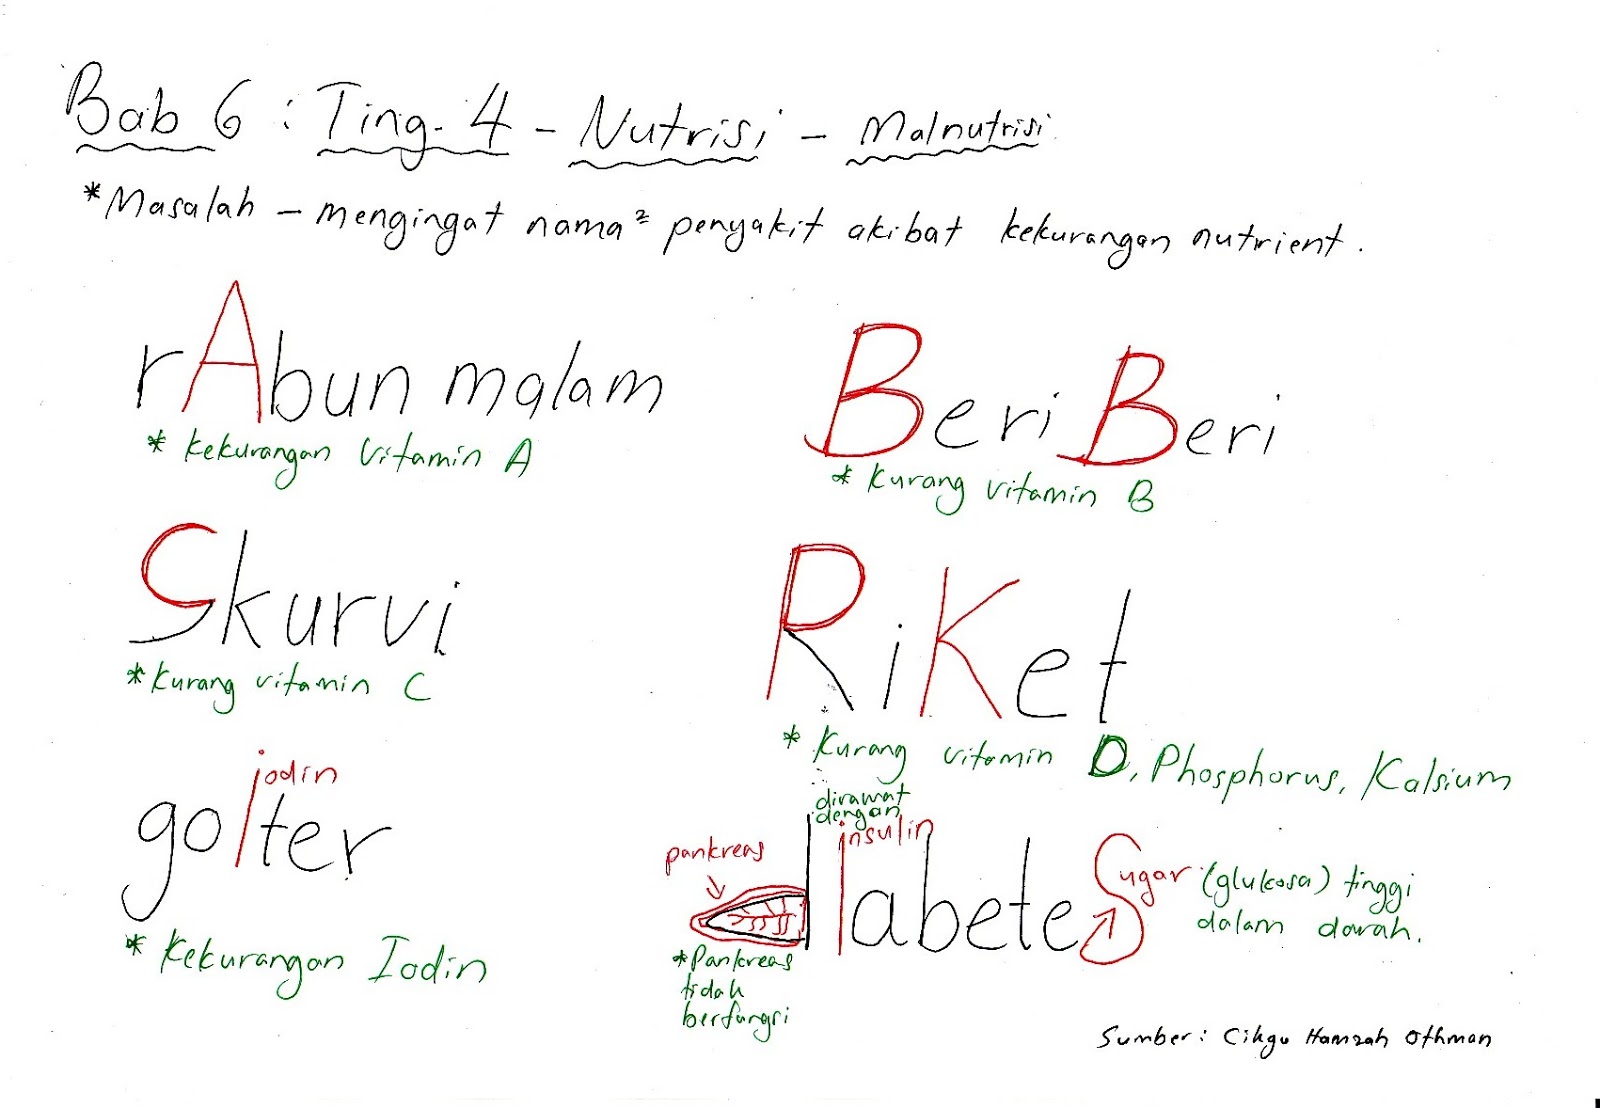 Bab 6 : Ting. 4 - Nutrisi - Malnutrisi
*Masalah - mengingat nama² penyakit akibat kekurangan nutrient.
rAbun malam
* kekurangan Vitamin A
Beri Beri
* kurang vitamin B
Skurvi
* kurang vitamin C
RiKet
* kurang vitamin D, Phosphorus, Kalsium
iodin
goIter
* Kekurangan Iodin
dirawat
dengan
insulin
pankreas
dIabeteS
Sugar (glukosa) tinggi
dalam darah.
*Pankreas
tidak
berfungsi
Sumber: Cikgu Hamzah Othman